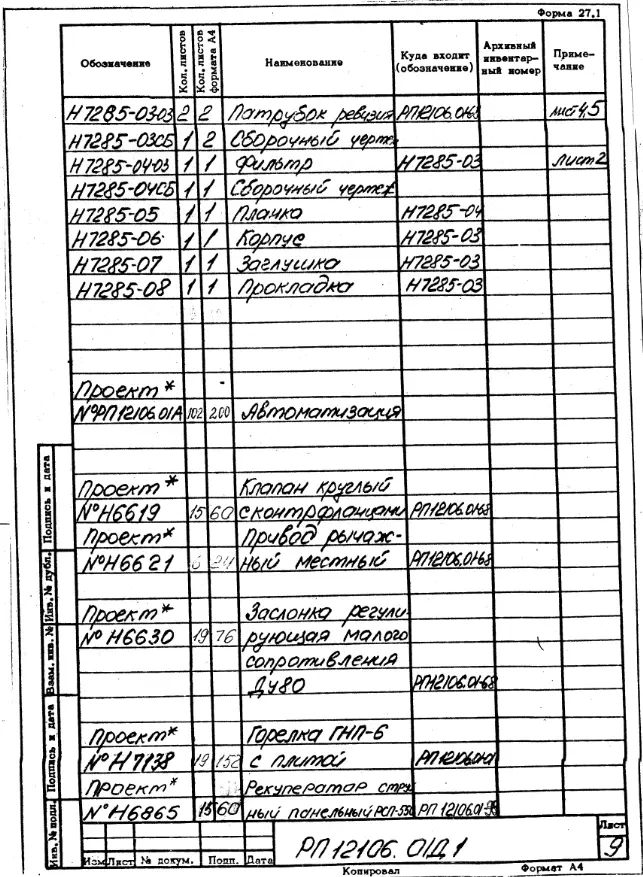 Форма 27.1
Обозначение Кол. листов Кол. листов формата А4 Наименование Куда входит (обозначение) Архивный инвентарный номер Примечание
Н7285-0303 2 2 Патрубок ревизия РП12106.0168 лист 4,5
Н7285-03СБ 1 2 Сборочный чертеж
Н7285-0403 1 1 Фильтр Н7285-03 Лист 2
Н7285-04СБ 1 1 Сборочный чертеж
Н7285-05 1 1 Планка Н7285-04
Н7285-06 1 1 Корпус Н7285-03
Н7285-07 1 1 Заглушка Н7285-03
Н7285-08 1 1 Прокладка Н7285-03
Проект*
№РП12106.01А 102 200 Автоматизация
Проект* Клапан круглый
№Н6619 15 60 с контрфланцами РП12106.01-68
Проект* Привод рычаж-
№Н6621 6 24 ный местный РП12106.01-68
Проект* Заслонка регули
№Н6630 19 76 рующая малого
сопротивления
Ду80 РП12106.01-68
Проект* Горелка ГНП-6
№Н7138 19 152 с плитой
Проект* Рекуператор стру
№Н6865 15 60 ный панельный РСП-550 РП 12106.01-
Инв. № подл. Подпись и дата Взам. инв. № Инв. № дубл. Подпись и дата
Изм Лист № докум. Подп. Дата
РП12106.01Д.1
Лист
9
Копировал Формат А4